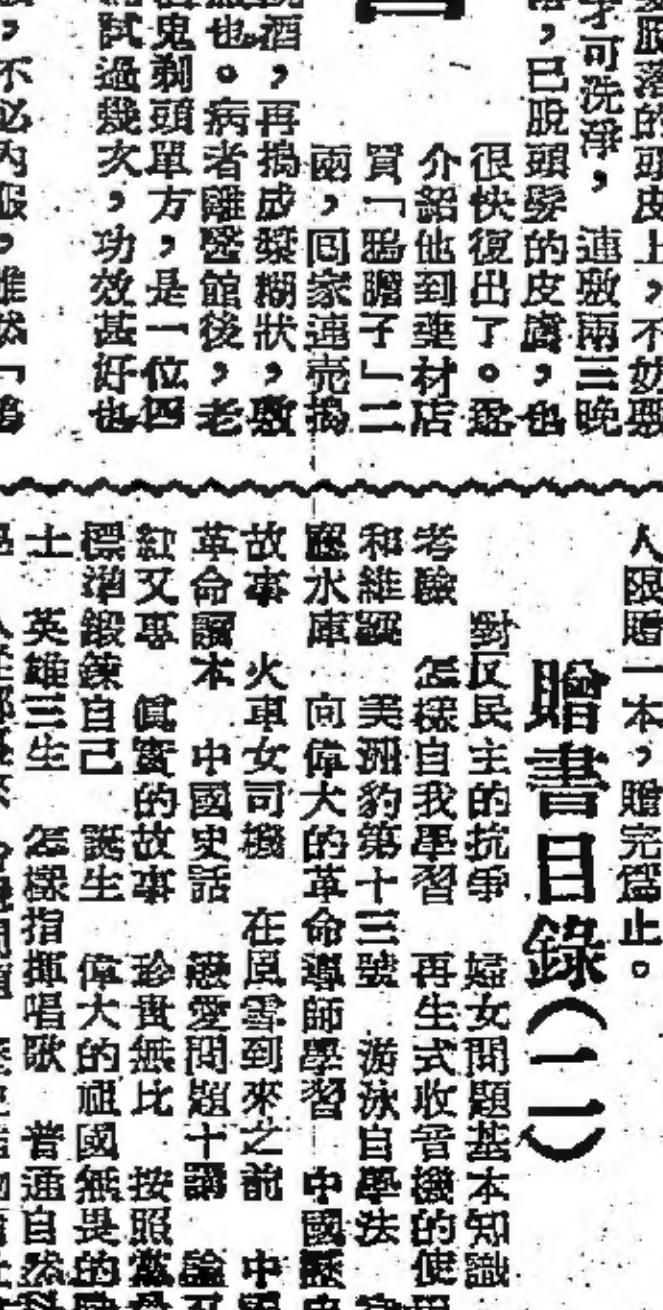 上，不妨敷
才可洗淨，連敷兩三晚
，已脫頭髮的皮膚，也
很快復出了。
介紹他到藥材店
買「鴉膽子」二
兩，囘家連壳搗
酒，再搗成漿糊狀，敷
也。病者離醫館後，老
鬼剃頭單方，是一位四
試過幾次，功效甚好也
，不必內服，雖然「鴉
人限贈一本，贈完爲止。
贈書目錄（二）
對反民主的抗爭　婦女問題基本知識
考驗　怎樣自我學習　再生式收音機的使
和維護　美洲豹第十三號　游泳自學法
水庫　向偉大的革命導師學習　中國歷史
故事　火車女司機　在風雪到來之前　中國
革命讀本　中國史話　戀愛問題十講　論
紅又專　眞實的故事　珍貴無比　按照黨
標準鍛鍊自己　誕生　偉大的祖國無畏的
士　英雄三生　怎樣指揮唱歌　普通自然科